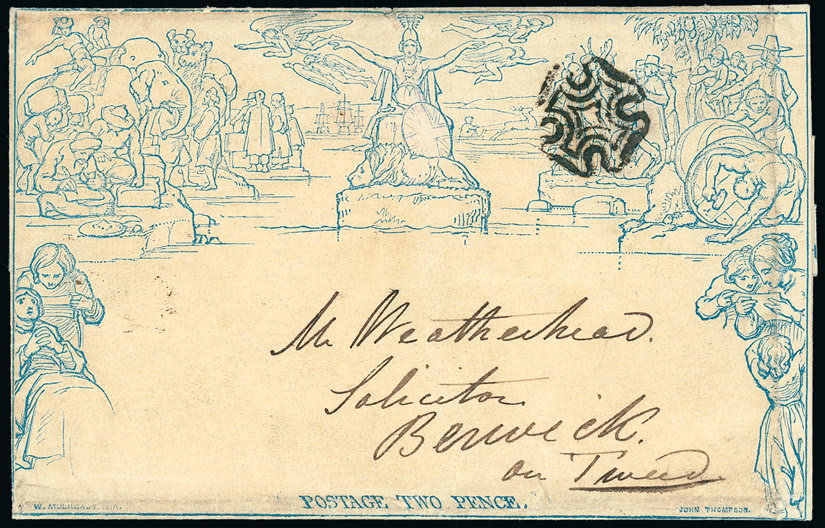 Mr Weatherhead.
Solicitor
Berwick.
on Tweed.
W. MULREADY. R.A.
POSTAGE TWO PENCE.
JOHN THOMPSON.